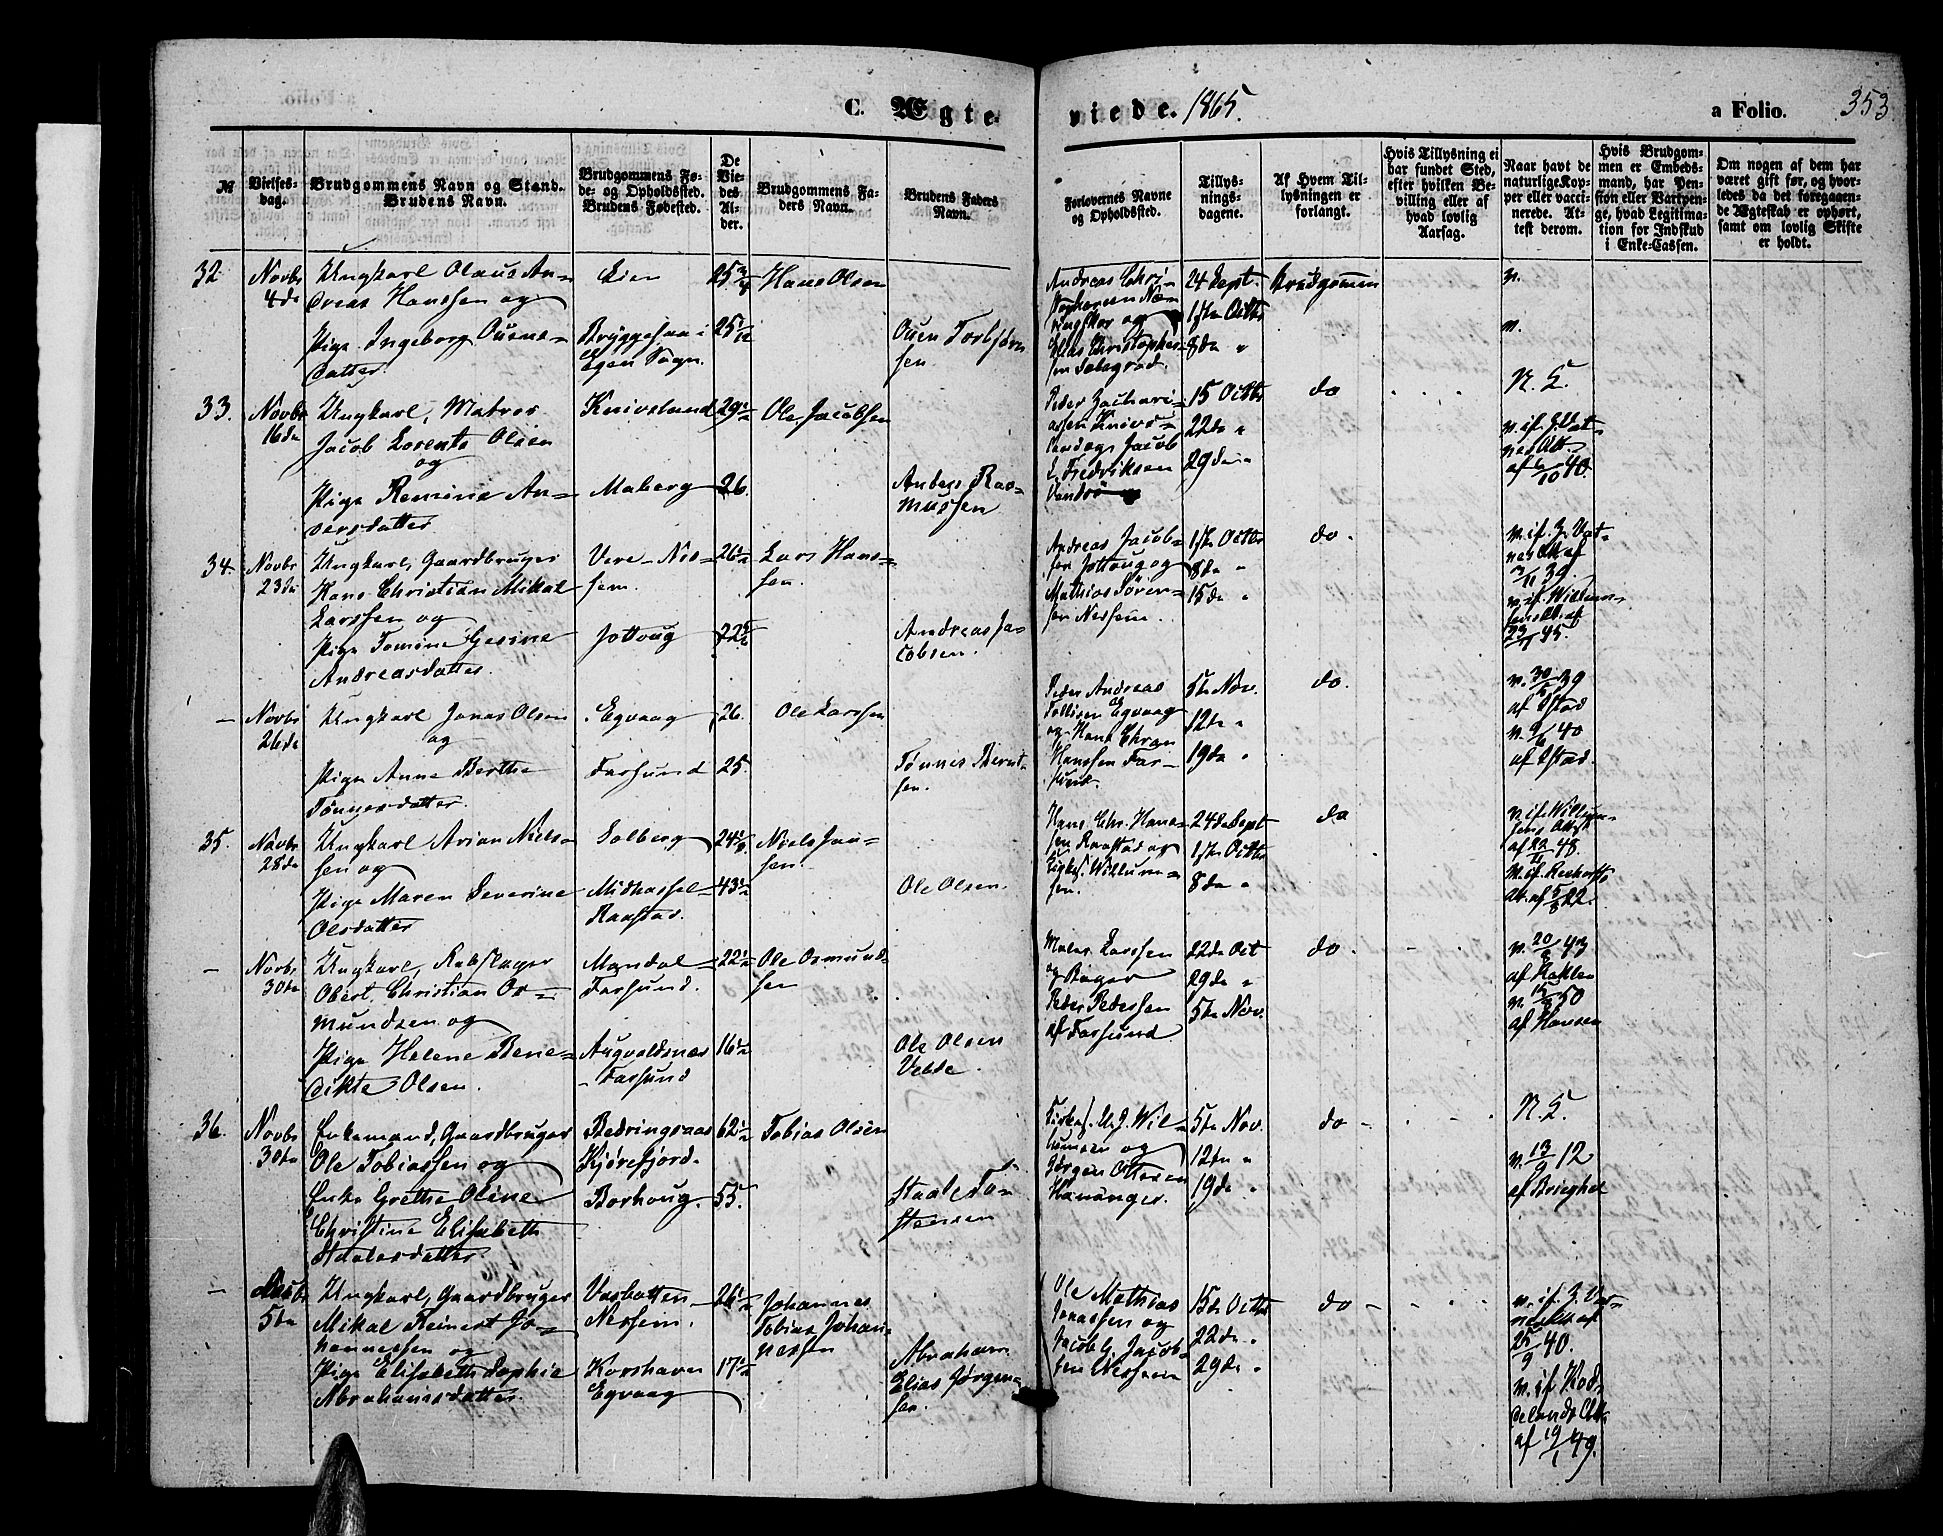 C. Ægte
viede. 1865.
a Folio. 353
№
Vielses-
dag.
Brudgommens Navn og Stand.
Brudens Navn.
Brudgommens Fø-
de- og Opholdssted.
Brudens Fødested.
De
Vie-
des
Al-
der.
Brudgommens Fa-
ders Navn.
Brudens Faders
Navn.
Forlovernes Navne
og Opholdssted.
Tillys-
nings-
dagene.
Af Hvem Til-
lysningen er
forlangt.
Hvis Tillysning ei
har fundet Sted,
efter hvilken Be-
villing eller af
hvad lovlig
Aarsag.
Naar havt de
naturlige Kop-
per eller vacci-
nerede. At-
test derom.
Hvis Brudgom-
men er Embeds-
mand, har Pen-
sion eller Vartpen-
ge, hvad Legitima-
tion for Indskud
i Enke-Cassen.
Om nogen af dem har
været gift før, og hvor-
ledes da det foregaaen-
de Ægteskab er ophørt,
samt om lovlig Skifte
er holdt.
32
Novbr
4de
Ungkarl Olaus An-
dreas Hanssen og
Pige Ingeborg Ouens-
datter.
Eier
Bryggesaa i
Egen Sogn.
25 3/4
25 1/12
Hans Olsen
Ouen Torbjørn
sen.
Andreas Chri-
og
Elias Christopher-
sen
24 Sept.
1ste Octbr
8de "
Brudgommen
v.
v.
33.
Novbr
16de
Ungkarl, Matros
Jacob Lorents Olsen
og
Pige Remine An-
dersdatter
Knivsland
Maberg
29 1/2
26.
Ole Jacobsen
Anders Ras-
mussen
Peder Zachari-
assen Knivs-
land og Jacob
L. Fredriksen
15 Octbr
22de "
29de "
do
N. L.
v. if. Z. Vat-
nes Att.
af 6/10 40.
34.
Novbr
23de
Ungkarl, Gaardbruger
Hans Christian Mikal
Larssen og
Pige Tomine Gesine
Andreasdatter.
Vere - Nes-
sem.
Jottoug
26 1/2
Lars Hans-
sen.
Andreas Ja-
cobsen.
Andreas Jacob-
sen Jottoug og
Mathias Søren-
sen Nessem.
1ste Octbr
8de "
15de "
do.
v. if. Z. Vat-
nes Att af
3/11 39.
v. if. Willum-
sens Att. af
45.
–
Novbr
26de
Ungkarl Jonas Olsen
og
Pige Anne Berthe
Tønnesdatter.
Egvaag
Farsund
26.
25.
Ole Larssen
Tønnes Bernt-
sen.
Peder Andreas
Tollisen Egvaag
og Hans Chran
Hanssen Far-
sund.
5te Nov.
12de "
19de "
do.
39
af Ystad
v. 9/6 40
af Ystad.
35.
Novbr
28de
Ungkarl Arian Niels-
sen og
Pige Maren Severine
Olsdatter
Solberg
Midhassel -
Raastad.
43 1/2
Niels Jan-
sen.
Ole Olsen.
Hans Chr. Hans-
sen Raastad og
Kirkes. Willum-
sen.
24de Sept
1ste Octbr
8de "
do
v. if. Willum-
sens Attst
af 22/11 48.
v. if. Reichorts
at. af 5/8 22.
–
Novbr
30te
Ungkarl, Rebslager
Obert Christian Os-
mundsen og
Pige Helene Bene-
dikte Olsen.
Mandal -
Farsund.
Augvaldsnæs
- Farsund
22 1/2
16 1/2
Ole Osmund-
sen
Ole Olsen
Velde.
Maler Larssen
og Bager
Peder Pedersen
af Farsund
22de Oct
29de "
5te Nov.
do
v. 20/8 43
af
50
af Hansen
36.
Novbr
30te
Enkemand, Gaardbruger
Ole Tobiassen og
Enke Grethe Oline
Christine Elisabeth
Staalesdatter
Bedringsaas
Kjørrefjord.
Borhoug.
62 1/2
55.
Tobias Olsen
Staale To-
stensen
Kirkes. U. J. Wil-
lumsen og
Jørgen Ottesen
Hananger.
5te Nov.
12de "
19de "
do -
N. L.
v. 13/9 12
af Brieghel
–
Decbr
5te
Ungkarl, Gaardbruger
Mikal Reinert Jo-
hannessen og
Pige Elisabeth Sophie
Abrahamsdatter.
Vasbotten -
Nessem.
Korshavn
Egvaag
26 1/2
17 1/2
Johannes
Tobias Johan-
nessen
Abraham
Elias Jørgen-
sen.
Ole Mathias
Jonassen og
Jacob G. Jacob-
sen Nessem
15de Octbr
22de "
29de "
do -
v. if. Z. Vat-
nes Att af
25/9 40.
v. if. Rod-
delands Att
af 19/1 49.